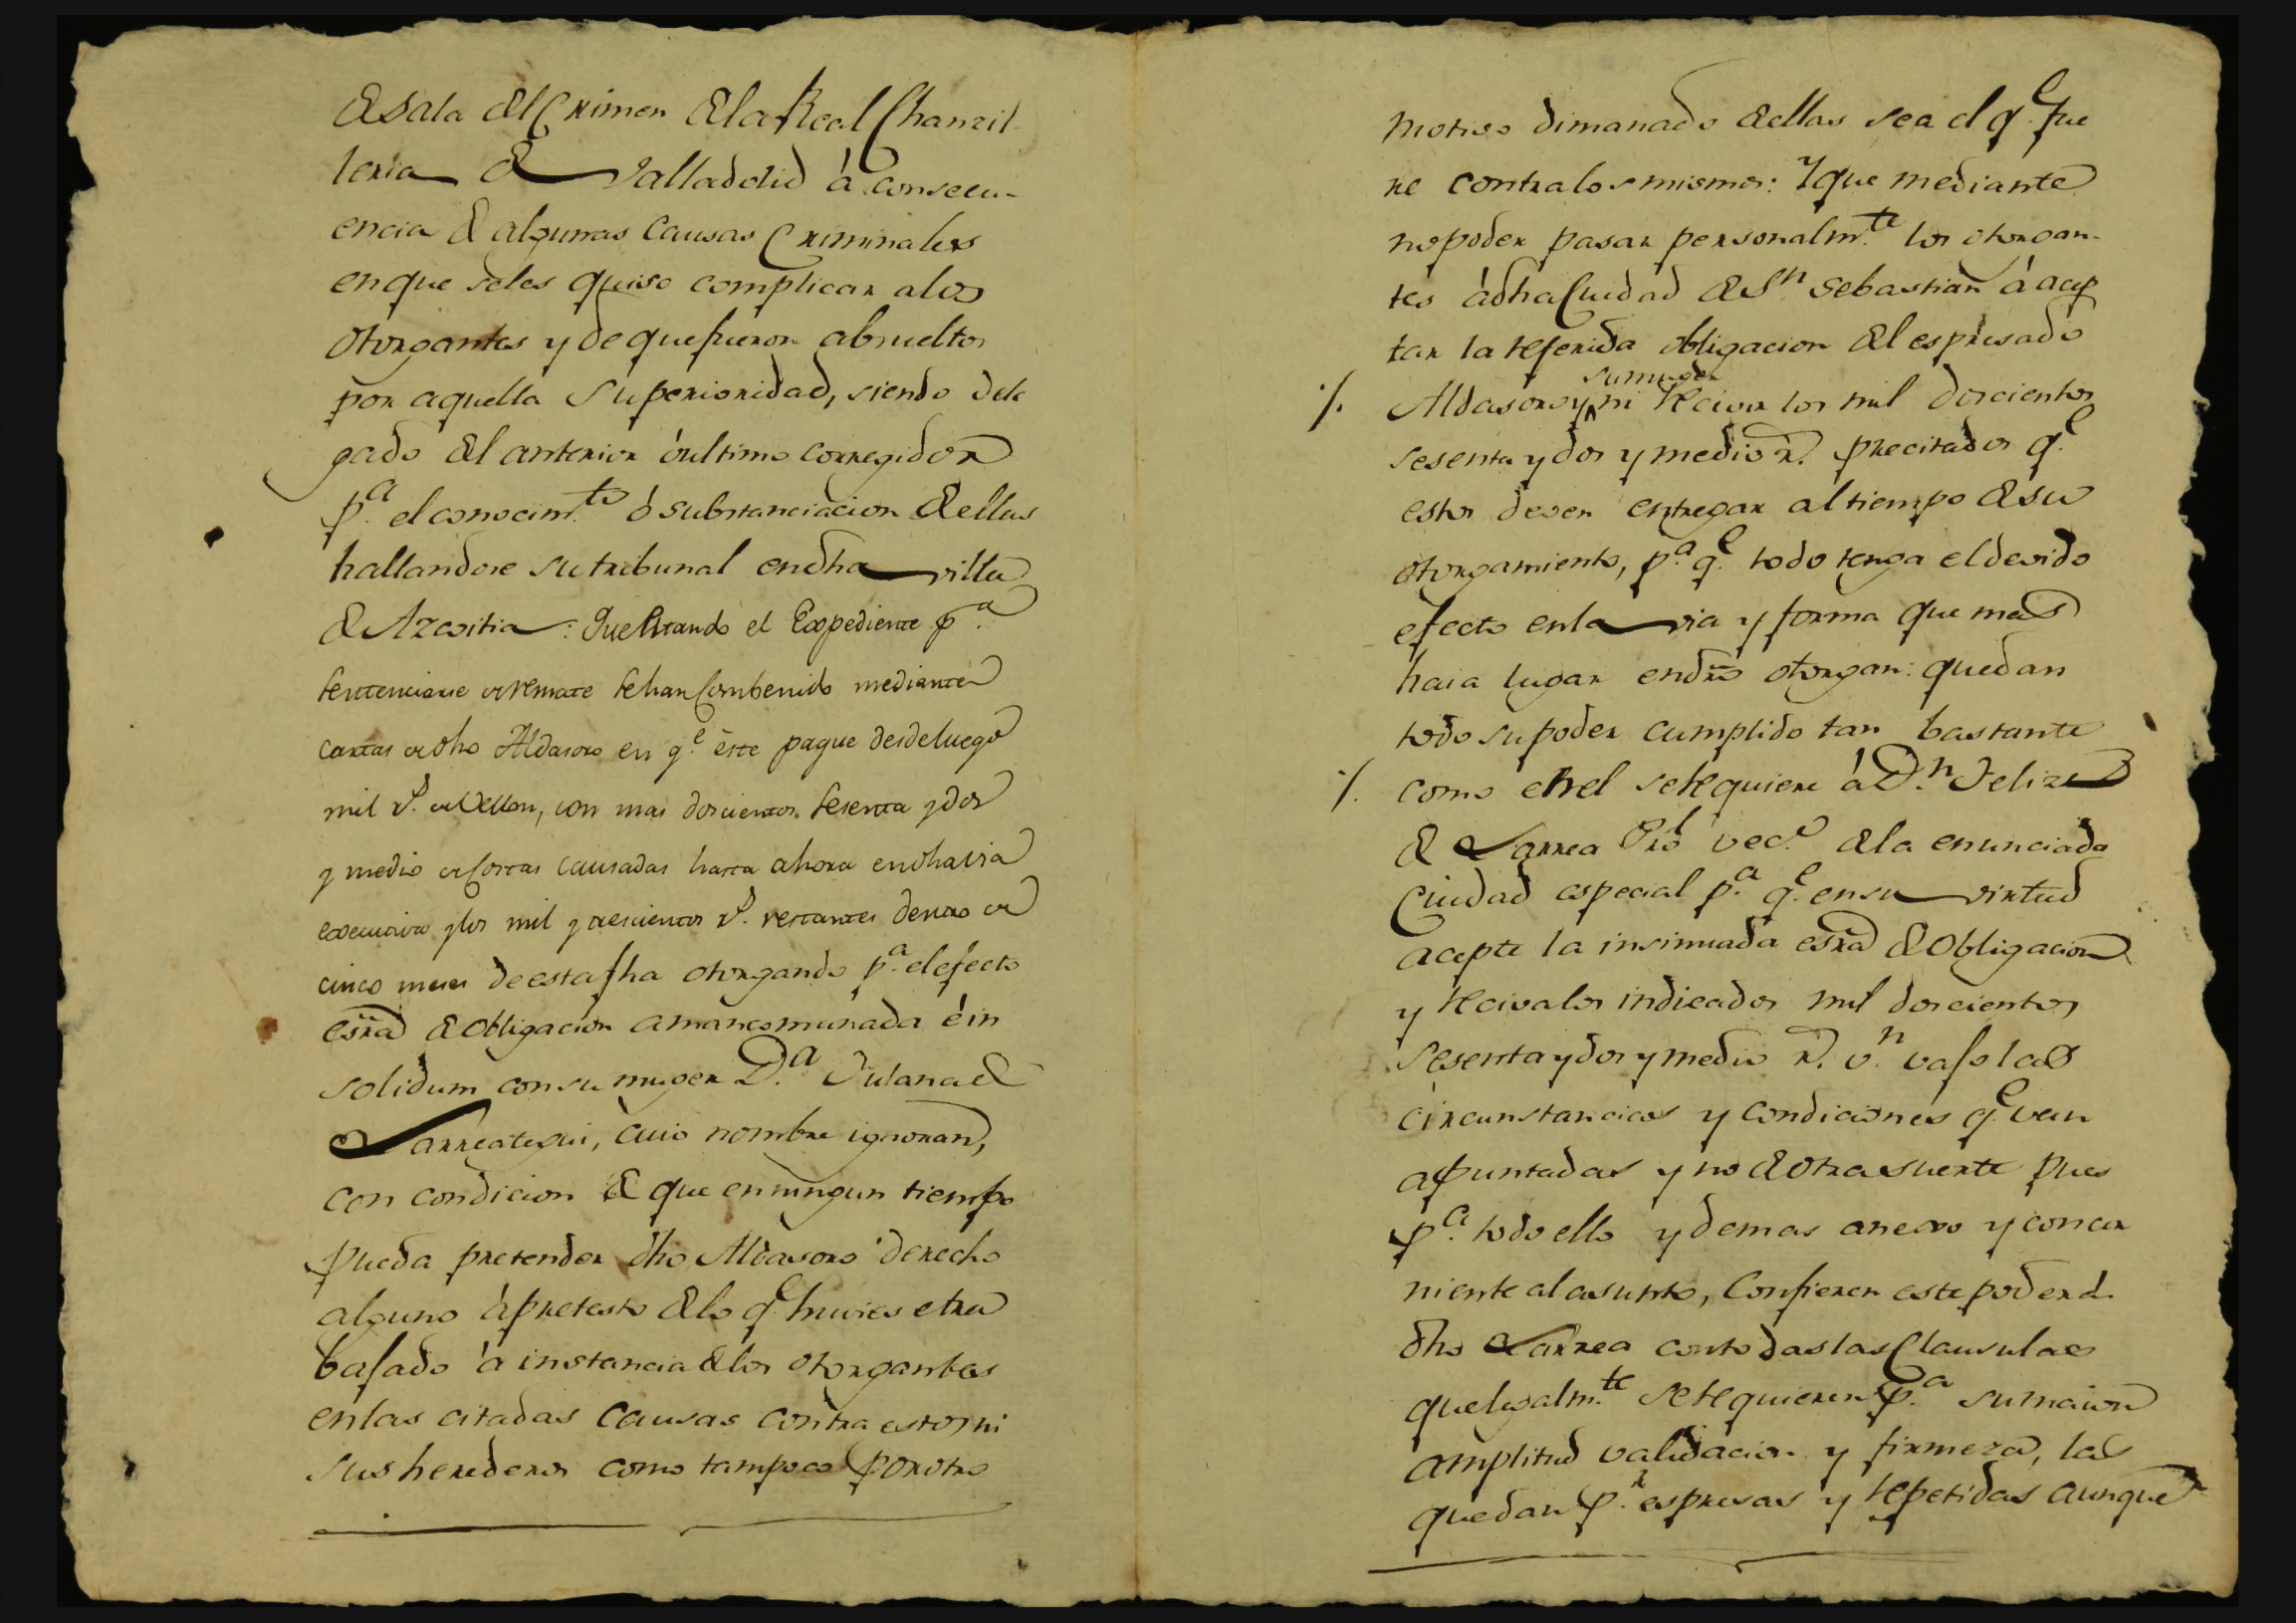 de Sala del Crimen de la Real Chanzil-
leria de Valladolid á consecu-
encia de algunas Causas Criminales
en que seles quiso complicar alos
otorgantes y de que fueron absueltos
por aquella Superioridad, siendo dele
gado del anterior ó ultimo corregidor
p.ª el conocim.to ó substanciacion de ellas
hallandose su tribunal en dha villa
de Azcoitia: Que estando el Expediente p.ª
sentenciarse de remate se han combenido mediante
cartas de dho Aldasoro en q.e este pague desde luego
mil r.s de Vellon, con mas doscientos sesenta y dos
y medio de costas causadas hasta ahora en dha via
executiva y los mil y trescientos r.s restantes dentro de
cinco meses de esta fha otorgando p.ª el efecto
esṙa de obligacion amancomunada é in
solidum con su muger D.ª Fulana de
Larreategui, cuio nombre ignoran,
con condicion de que en ningun tiempo
pueda pretender dho Aldasoro derecho
alguno á pretesto de lo q.e huviese tra
bajado á instancia de los otorgantes
en las citadas causas contra estos ni
sus herederos como tampoco por otro
motivo dimanado de ellas sea el q.e fue
re contra los mismos: Y que mediante
no poder pasar personalm.te los otorgan-
tes á dha Ciudad de S.n Sebastian á acep
tar la referida obligacion del espresado
su muger
/. Aldasoro y ni recivir los mil doscientos
sesenta y dos y medio r.s precitados q.e
estos deven entregar al tiempo de su
otorgamiento, p.ª q.e todo tenga el devido
efecto en la via y forma que mas
haia lugar en dro otorgan: que dan
todo su poder cumplido tan bastante
/. como en el se requiere á D.n Felix
de Larrea Pro vec.º de la enunciada
Ciudad especial p.ª q.e en su virtud
acepte la insinuada esṙa de Obligacion
y reciva los indicados mil doscientos
sesenta y dos y medio r.s v.n vajo las
circunstancias y condiciones q.e van
apuntadas y no de otra suerte pues
p.ª todo ello y demas anexo y concer
niente al asunto, Confieren este poder á
dho Larrea con todas las Clausulas
que legalm.te se requieren p.ª su maior
amplitud validacion y firmeza, las
que dan p.r espresas y repetidas aunque